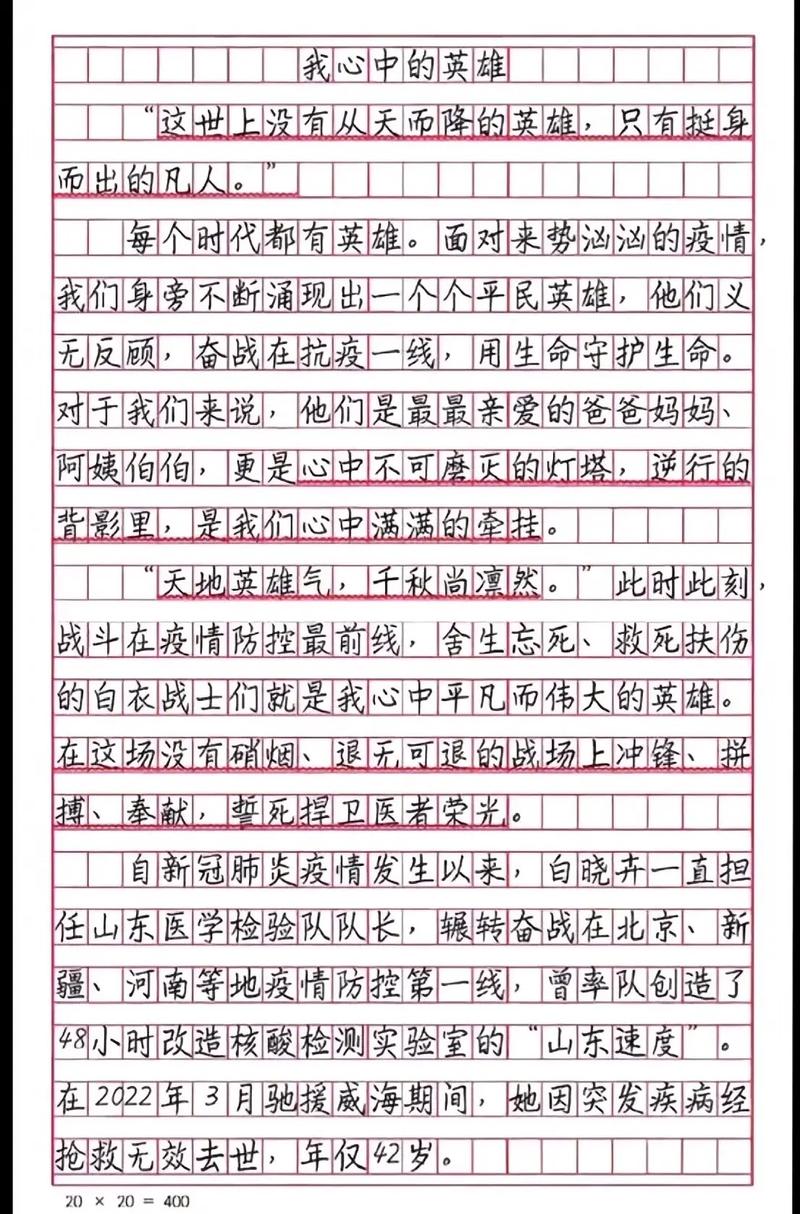 我心中的英雄
“这世上没有从天而降的英雄，只有挺身
而出的凡人。”
每个时代都有英雄。面对来势汹汹的疫情，
我们身旁不断涌现出一个个平民英雄，他们义
无反顾，奋战在抗疫一线，用生命守护生命。
对于我们来说，他们是最最亲爱的爸爸妈妈、
阿姨伯伯，更是心中不可磨灭的灯塔，逆行的
背影里，是我们心中满满的牵挂。
“天地英雄气，千秋尚凛然。”此时此刻，
战斗在疫情防控最前线，舍生忘死、救死扶伤
的白衣战士们就是我心中平凡而伟大的英雄。
在这场没有硝烟、退无可退的战场上冲锋、拼
搏、奉献，誓死捍卫医者荣光。
自新冠肺炎疫情发生以来，白晓卉一直担
任山东医学检验队队长，辗转奋战在北京、新
疆、河南等地疫情防控第一线，曾率队创造了
48小时改造核酸检测实验室的“山东速度”。
在2022年3月驰援威海期间，她因突发疾病经
抢救无效去世，年仅42岁。
20 × 20 = 400